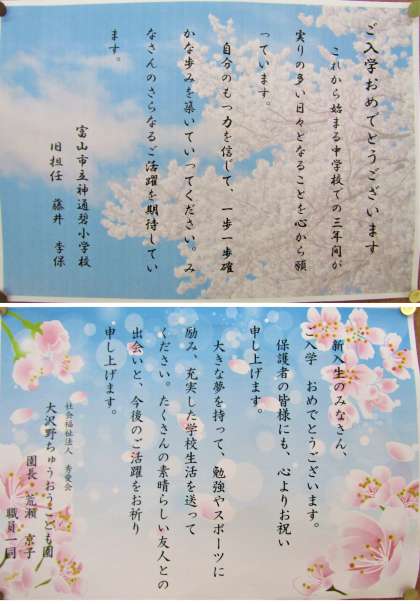 ご入学おめでとうございます
これから始まる中学校での三年間が
実りの多い日々となることを心から願
っています。
自分のもつ力を信じて、一歩一歩確
かな歩みを築いていってください。み
なさんのさらなるご活躍を期待してい
ます。
富山市立神通碧小学校
旧担任 藤井 季保
新入生のみなさん、
ご入学 おめでとうございます。
保護者の皆様にも、心よりお祝い
申し上げます。
大きな夢を持って、勉強やスポーツに
励み、充実した学校生活を送って
ください。たくさんの素晴らしい友人との
出会いと、今後のご活躍をお祈り
申し上げます。
社会福祉法人 秀愛会
大沢野ちゅうおうこども園
園長 荒瀬 京子
職員一同